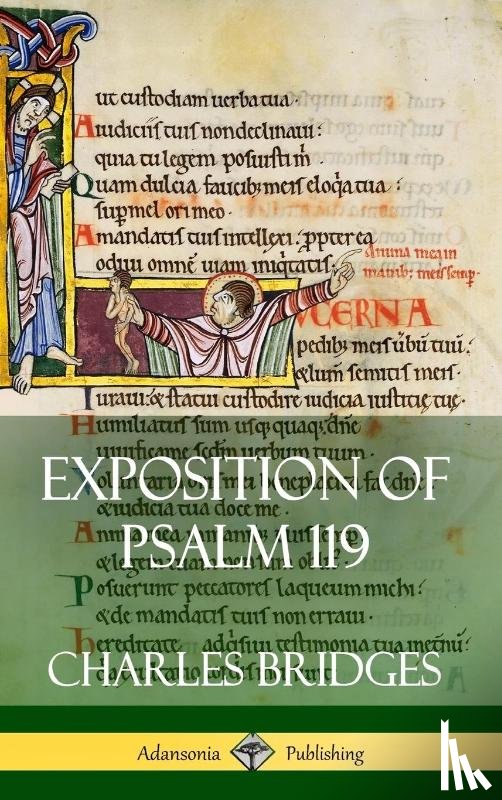 ut custodiam uerba tua·
A iudiciis tuis non declinaui:
quia tu legem posuisti m̄
Quam dulcia faucib; meis eloq̄a tua:
sup̄ mel ori meo·
A mandatis tuis intellexi: p̄pterea
odiui omnē uiam iniq̄tatis.
anima mea in
manib; meis semp̄·
LUCERNA
pedib; meis ūbū tuū:
& lum̄ semitis meis·
Iuraui: & statui custodire iudicia iusticię tuę·
Humiliatus sum usq; quaq; dn̄e
uiuifica me sc̄dm uerbum tuum·
EXPOSITION OF
& iudicia tua doce me·
PSALM 119
Posuerunt peccatores laqueum michi:
& de mandatis tuis non erraui·
hereditate adq̄siui testimonia tua
CHARLES BRIDGES
Adansonia Publishing